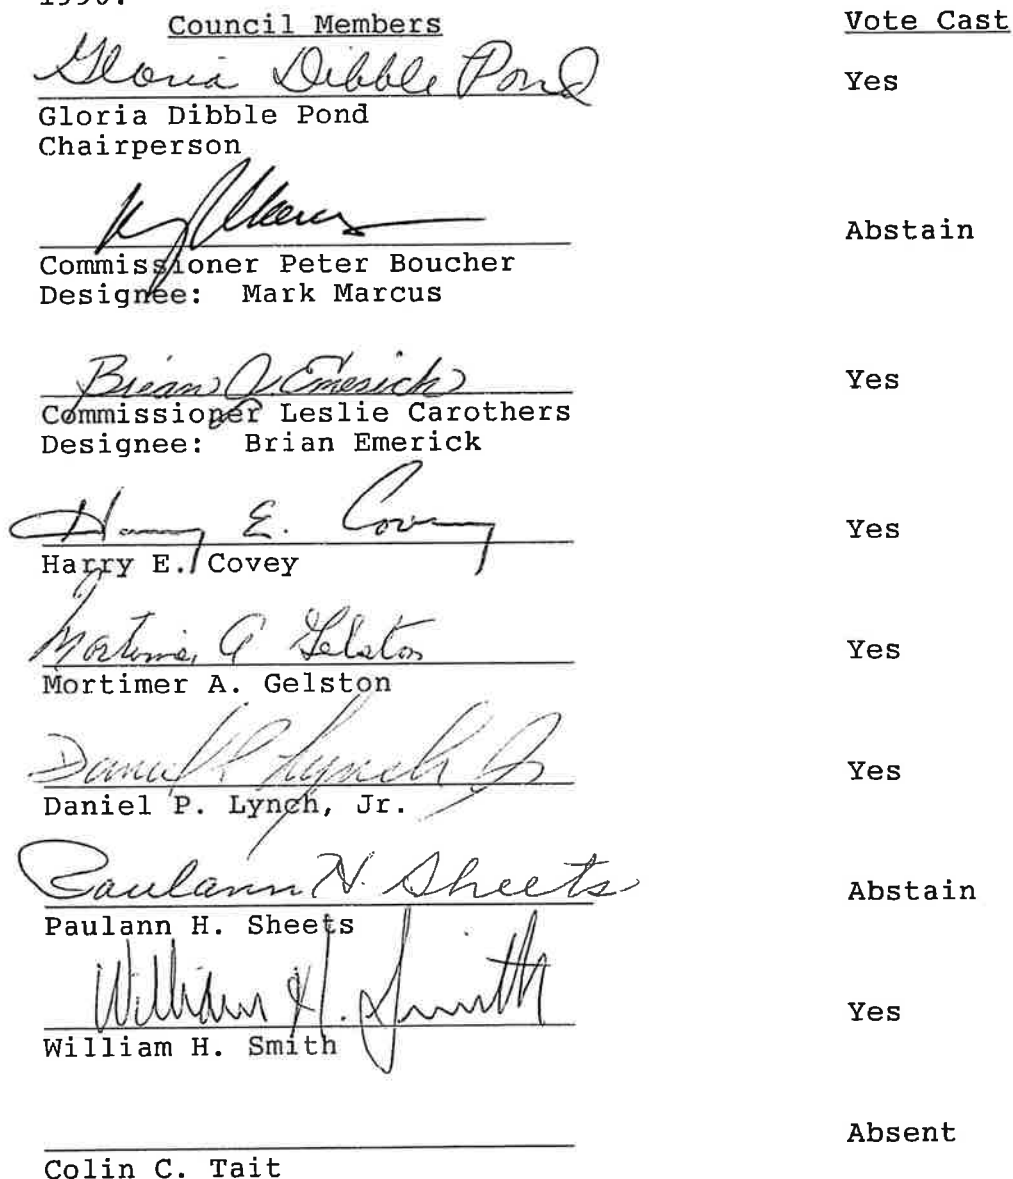 Council Members Vote Cast
Gloria Dibble Pond Yes
Gloria Dibble Pond
Chairperson
Abstain
Commissioner Peter Boucher
Designee: Mark Marcus
Brian J. Emerick Yes
Commissioner Leslie Carothers
Designee: Brian Emerick
Harry E. Covey Yes
Harry E. Covey
Mortimer A Gelston Yes
Mortimer A. Gelston
Daniel P Lynch Jr Yes
Daniel P. Lynch, Jr.
Paulann H. Sheets Abstain
Paulann H. Sheets
William H. Smith Yes
William H. Smith
Absent
Colin C. Tait